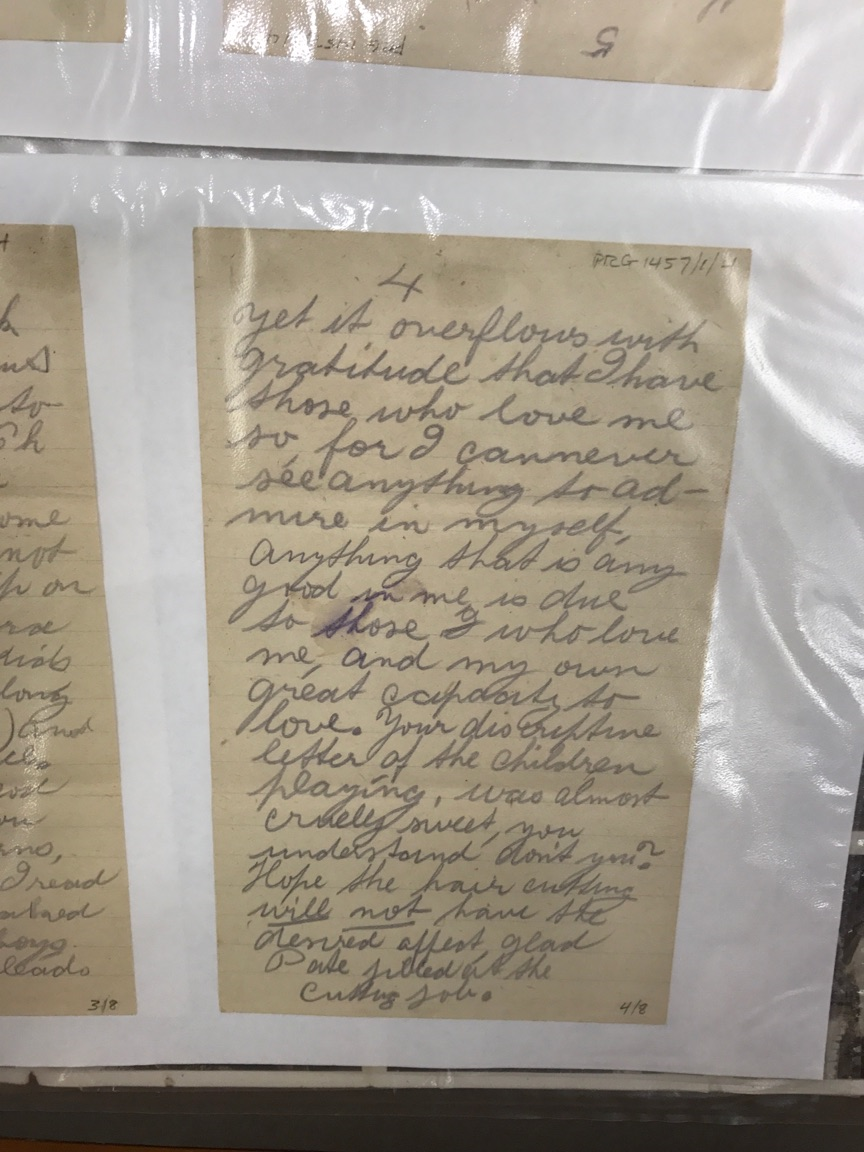 5
PRG 1457/1/4
4
yet it overflows with
gratitude that I have
those who love me
so, for I can never
see anything to ad-
mire in myself,
anything that is any
good in me, is due
to those who love
me, and my own
great capacity to
love. Your discriptive
letter of the children
playing, was almost
cruelly sweet, you
understand don't you?
Hope the hair cutting
will not have the
desired affect, glad
Pate jibbed at the
cutting job.
4/8
to
ome
not
p on
long
) and
I read
boys.
3/8